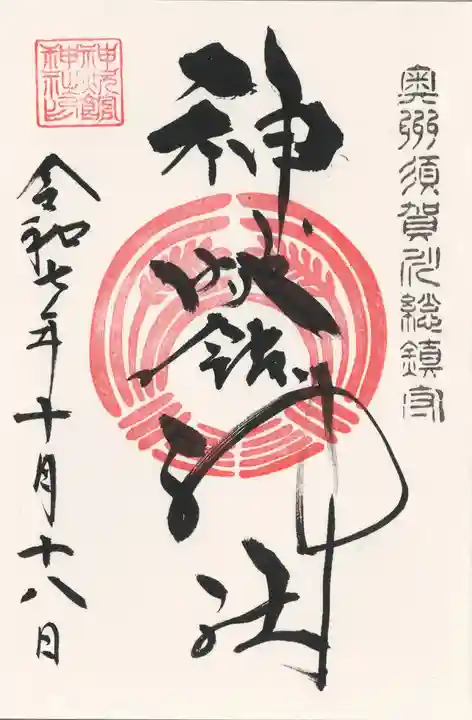 奥州須賀川総鎮守
神炊館神社
神炊館
神社印
令和七年十月十八日